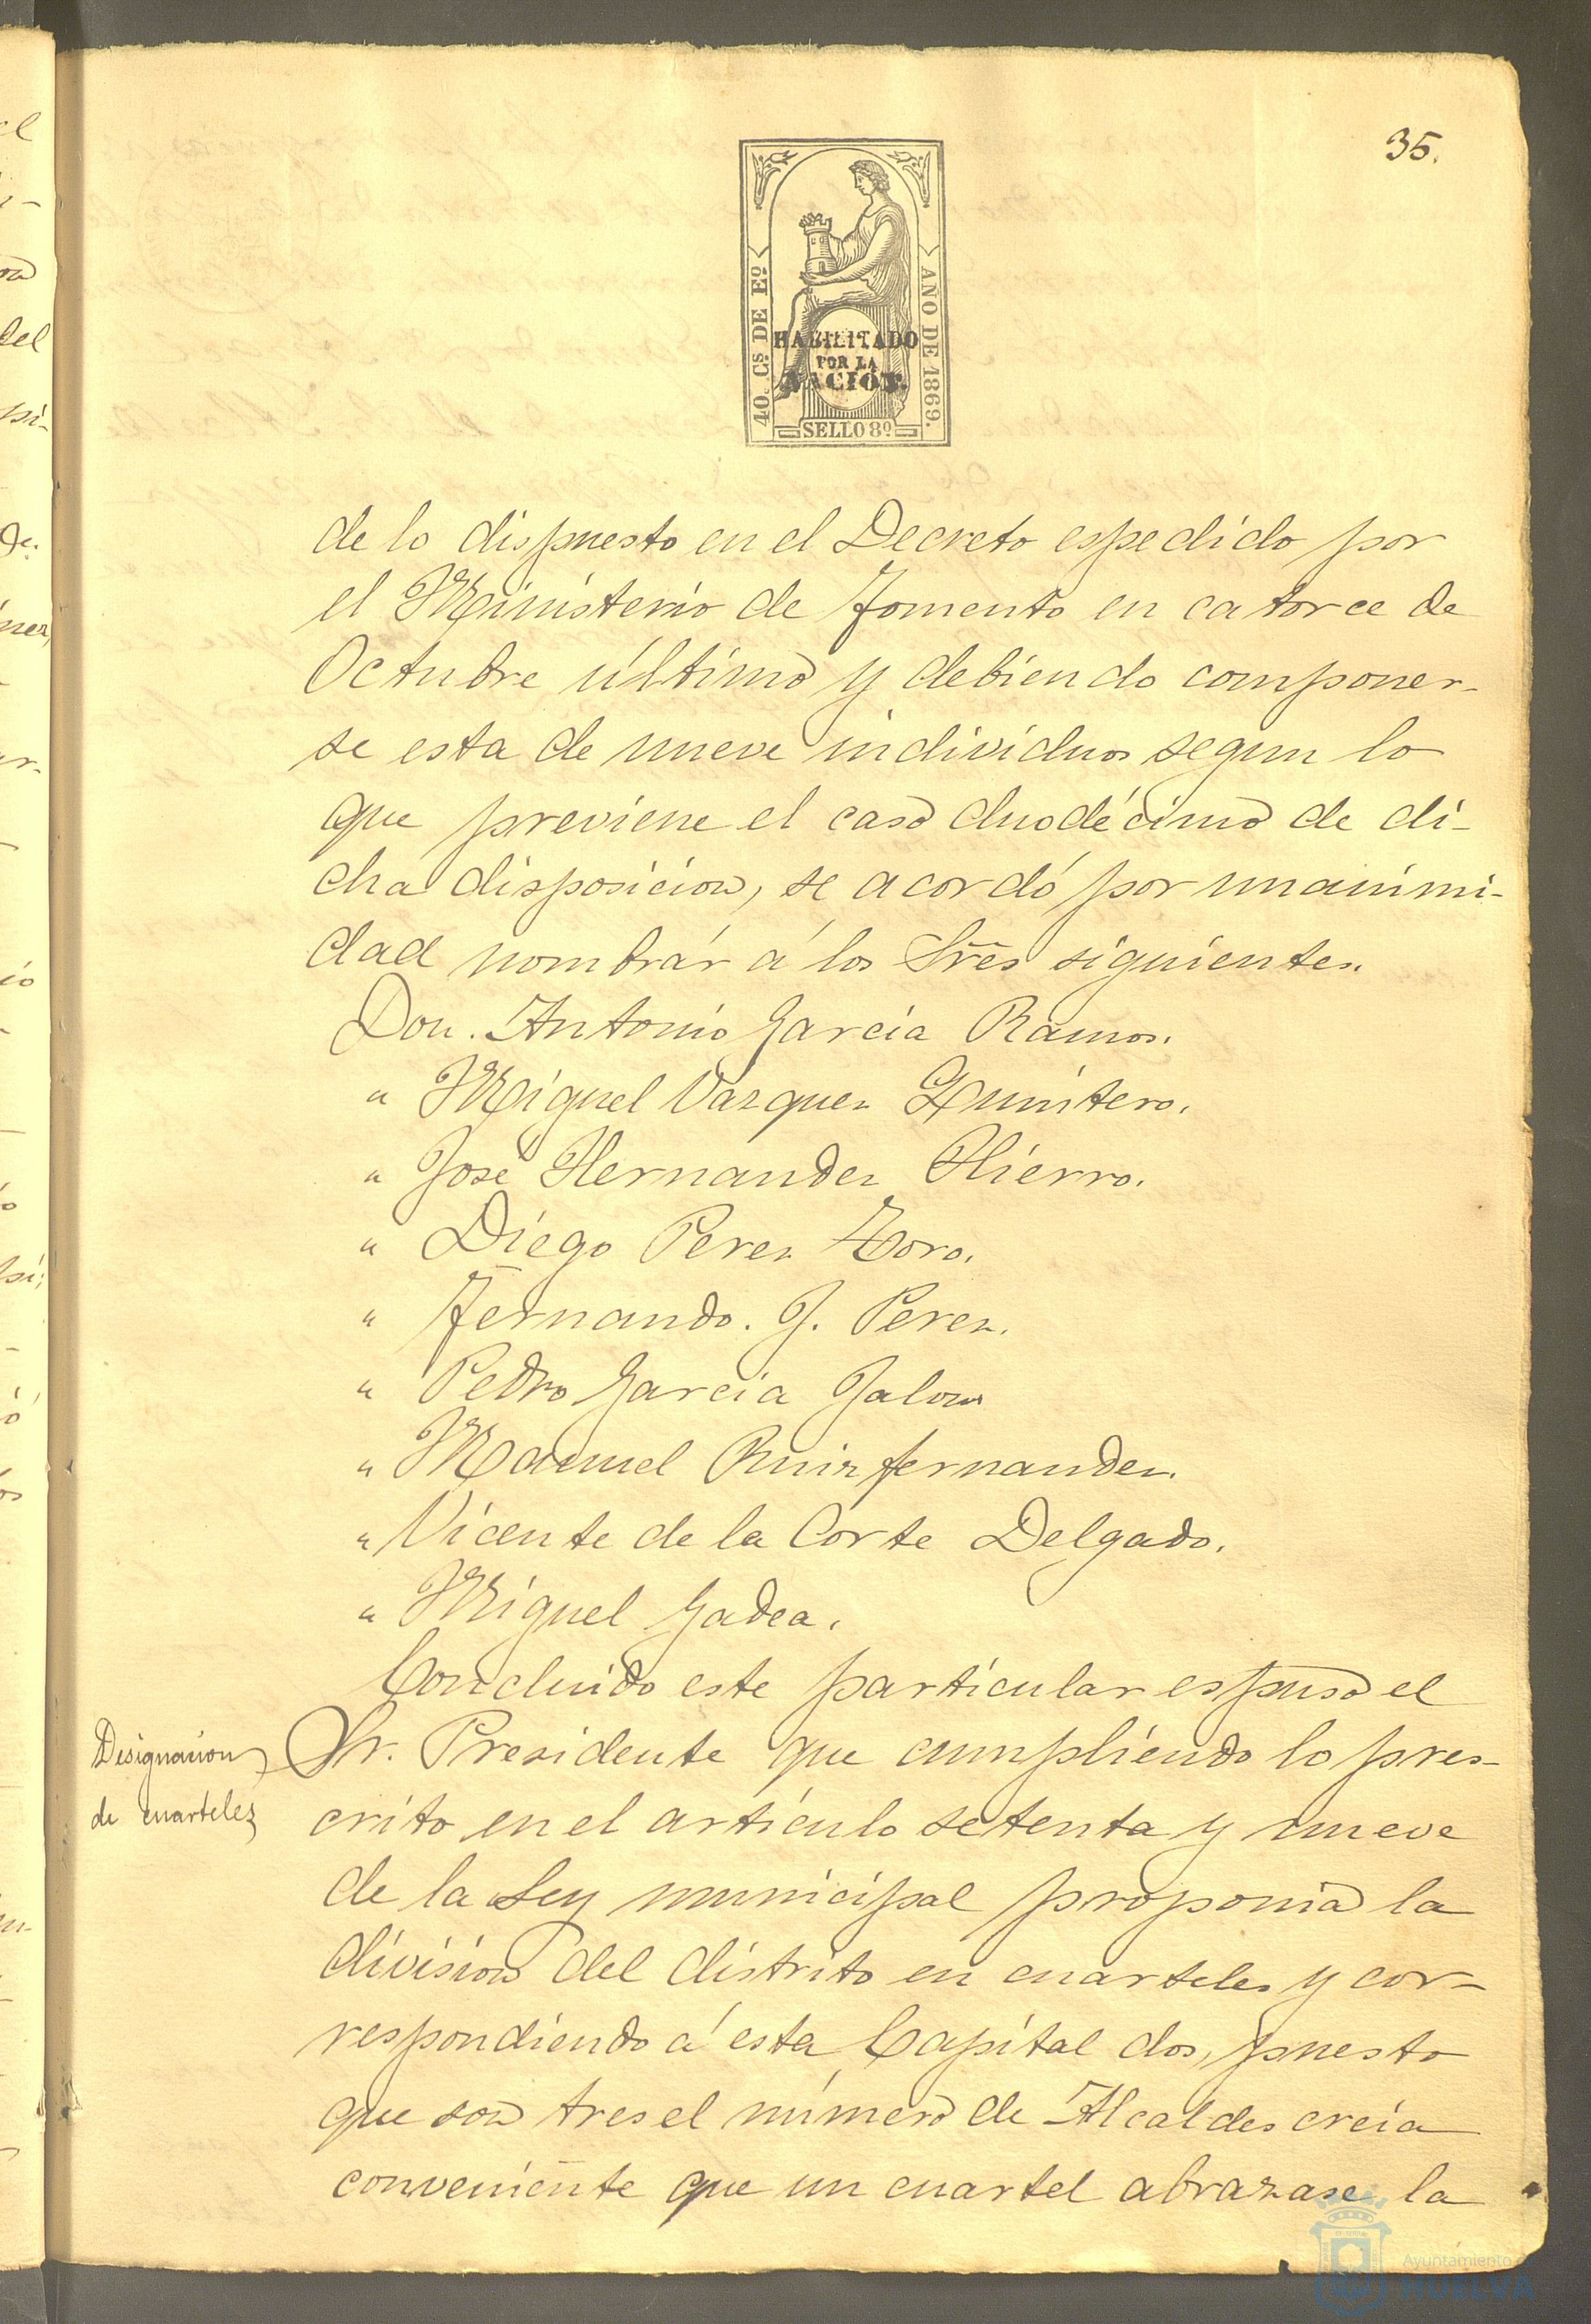 35.
40. Cs DE Eº
AÑO DE 1869.
HABILITADO
POR LA
NACION.
SELLO 8º
de lo dispuesto en el Decreto espedido por
el Ministerio de Fomento en catorce de
Octubre último y debiendo componer-
se esta de nueve individuos segun lo
que previene el caso duodécimo de di-
cha disposicion, se acordó por unanimi-
dad nombrár á los Sres siguientes.
Don. Antonio Garcia Ramos.
" Miguel Vazquez Quintero.
" José Hernandez Hierro.
" Diego Perez Toro.
" Fernando. J. Perez.
" Pedro Garcia Jalon
" Manuel Ruiz fernandez.
" Vicente de la Corte Delgado.
" Miguel Gadea.
Concluido este particular espuso el
Designacion
de cuarteles
Sr. Presidente que cumpliendo lo pres-
crito en el artículo setenta y nueve
de la Ley municipal proponia la
division del distrito en cuarteles y cor-
respondiendo á esta Capital dos, puesto
que son tres el número de Alcaldes creia
conveniente que un cuartel abrazase la
Ayuntamiento de
HUELVA